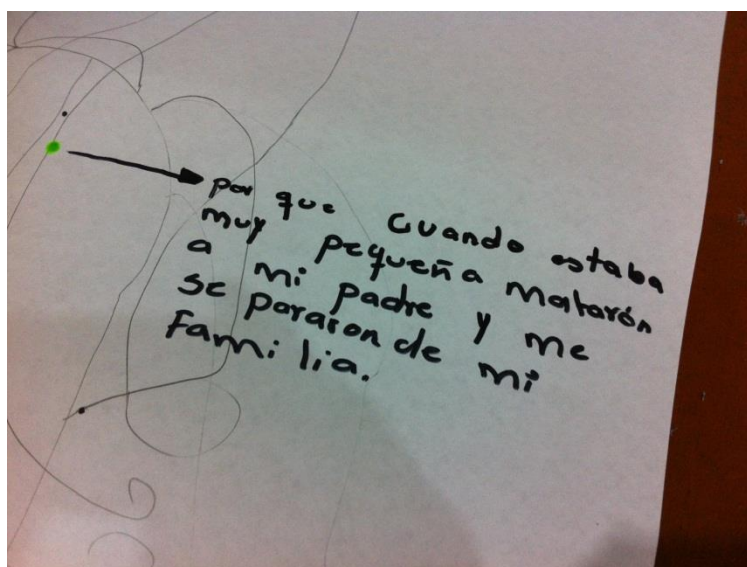 por que cuando estaba
muy pequeña matarón
a mi padre y me
se pararon de mi
familia.